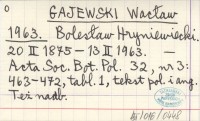 GAJEWSKI Wacław
1963. Bolesław Hryniewiecki.
20 II 1875 - 13 II 1963. —
Acta Soc. Bot. Pol. 32, nr 3:
463-472, tabl. 1, tekst pol. i ang.
Też nadb.
/015/0448